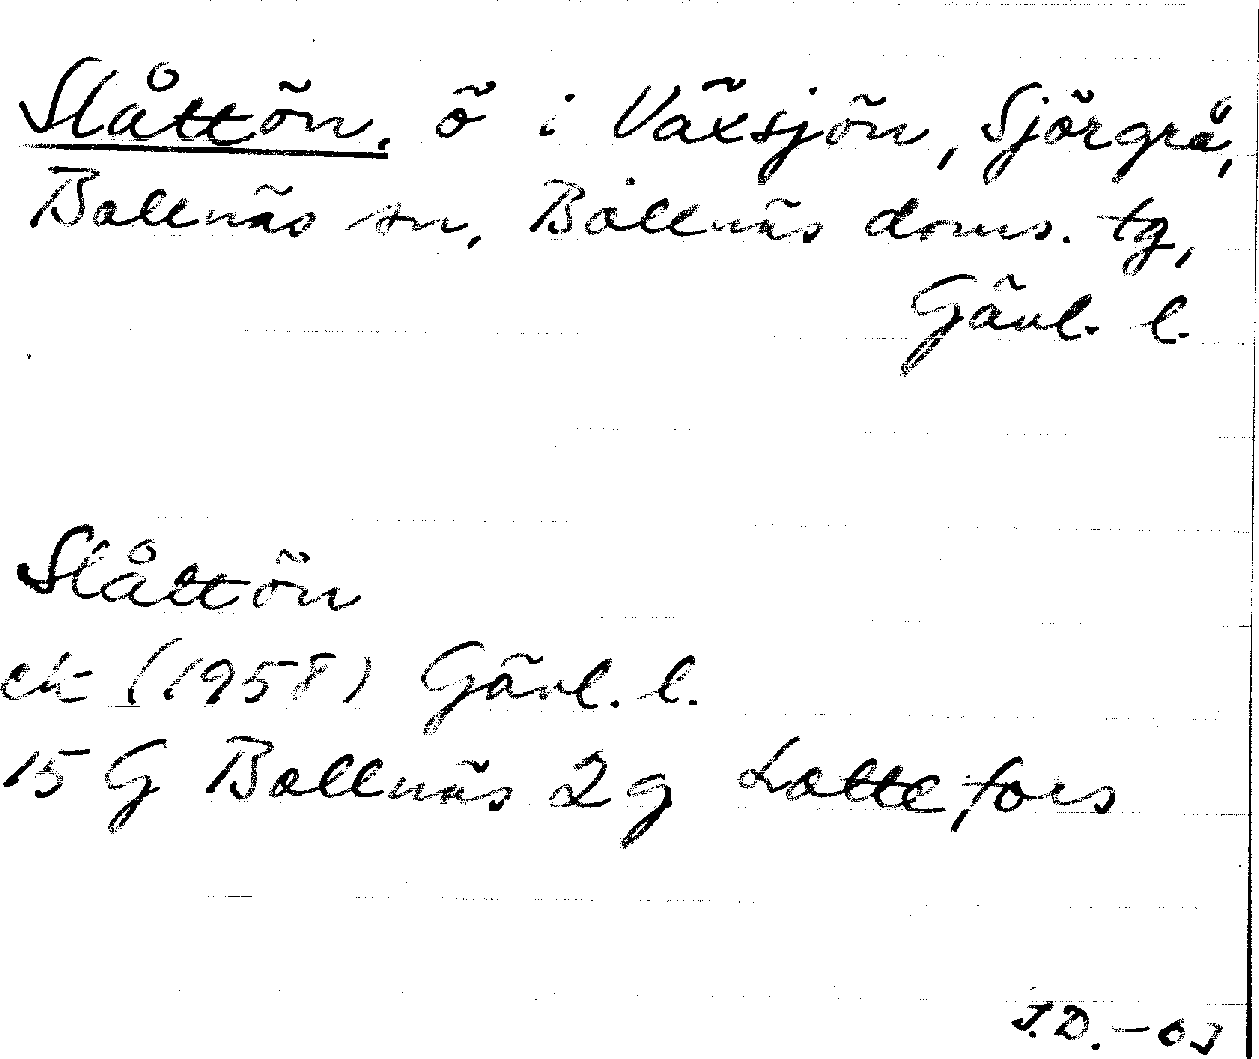 Slåttön. ö i Växsjön, Sjörgrå,
Bollnäs sn, Bollnäs doms. tg,
Gävl. l.
Slåttön
ek (1958) Gävl. l.
15 G Bollnäs 2 g Lottefors
J.D.-03